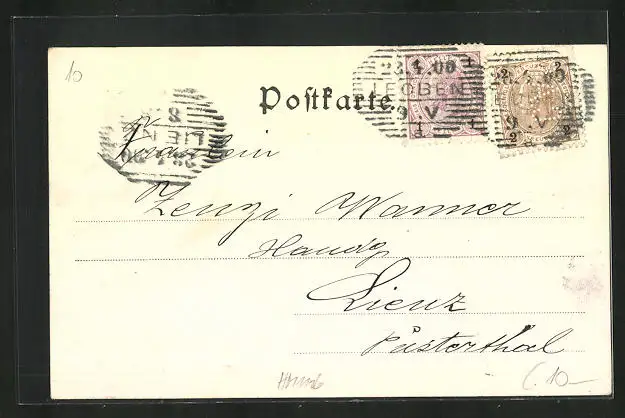 10
23.4.00
LEOBEN
9.V
Postkarte
LIENZ
Fräulein
Zenzi Wanner
Handg
Lienz
Pusterthal
C.10–